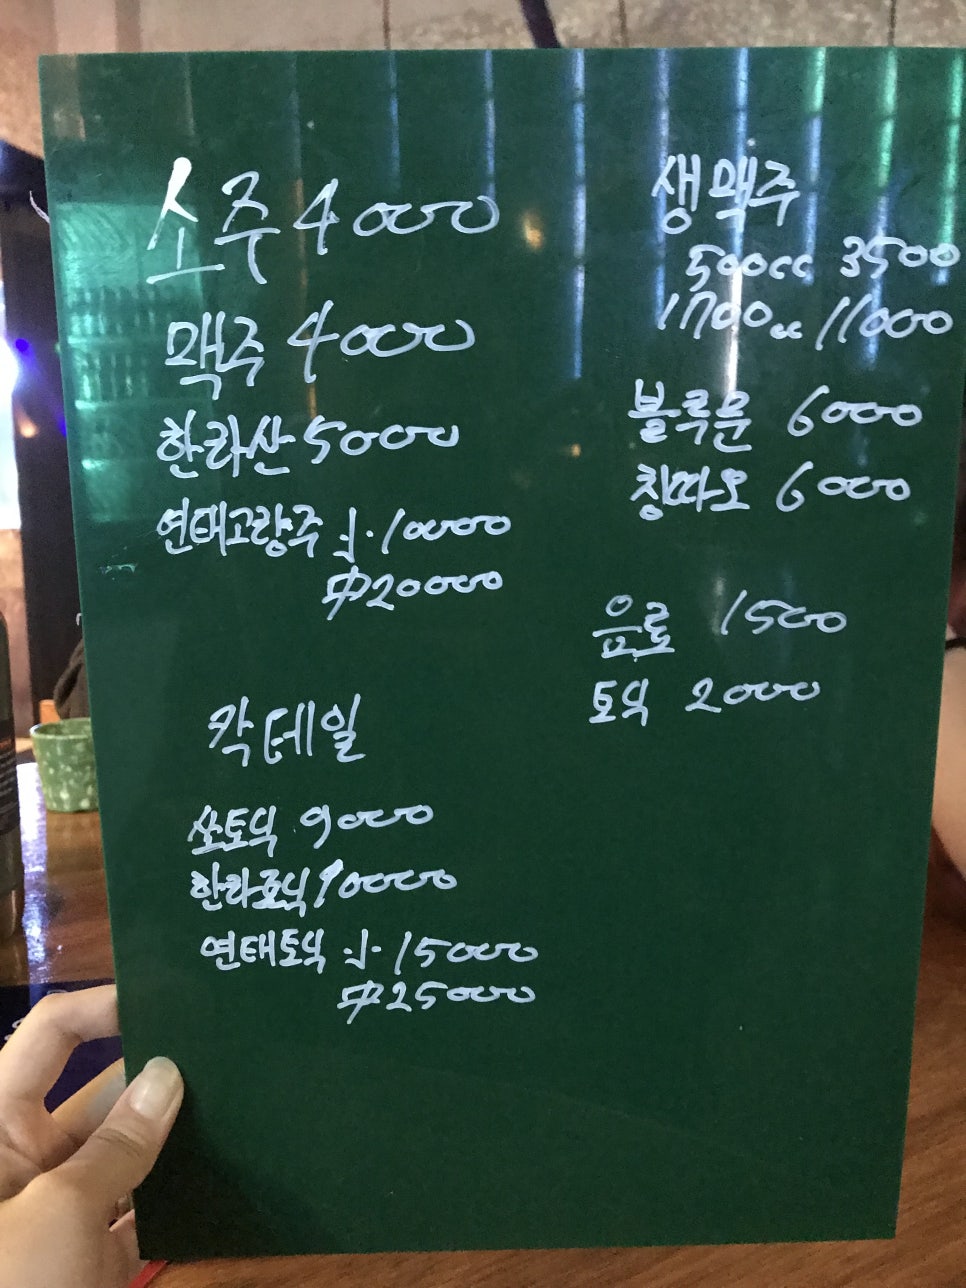 소주 4000
맥주 4000
한라산 5000
연태고량주 小 10000
中 20000
칵테일
쏘토닉 9000
한라토닉 10000
연태토닉 小 15000
中 25000
생맥주
500cc 3500
1700cc 11000
블루문 6000
칭따오 6000
음료 1500
토닉 2000